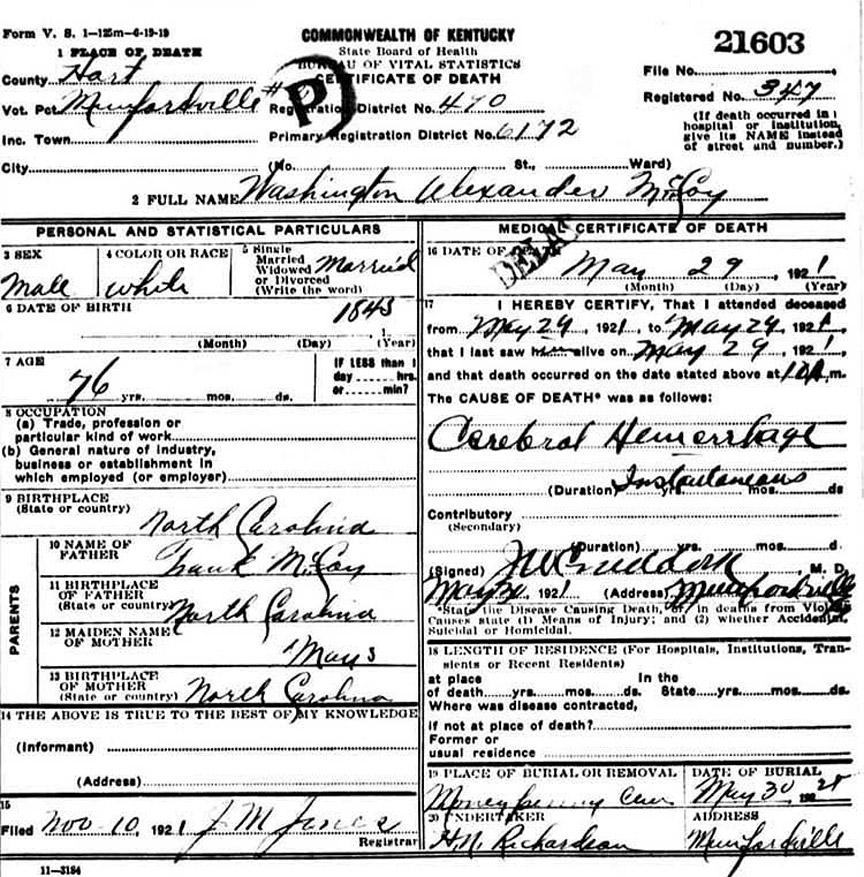 Form V. S. 1—125m—6-19-19
COMMONWEALTH OF KENTUCKY
State Board of Health
BUREAU OF VITAL STATISTICS
CERTIFICATE OF DEATH
21603
File No.
Registered No. 347
(If death occurred in
hospital or institution,
give its NAME instead
of street and number.)
1 PLACE OF DEATH
County Hart
Vot. Pct Munfordville #
P
Registration District No. 470
Inc. Town
Primary Registration District No. 6172
City (No. St., Ward)
2 FULL NAME Washington Alexander McCoy
PERSONAL AND STATISTICAL PARTICULARS
3 SEX
Male
4 COLOR OR RACE
white
5 Single
Married
Widowed
or Divorced
(Write the word)
Married
6 DATE OF BIRTH
1843
1
(Month) (Day) (Year)
7 AGE
76 yrs. mos. ds.
IF LESS than 1
day hrs.
or min?
8 OCCUPATION
(a) Trade, profession or
particular kind of work
(b) General nature of industry,
business or establishment in
which employed (or employer)
9 BIRTHPLACE
(State or country)
North Carolina
PARENTS
10 NAME OF
FATHER
Frank McCoy
11 BIRTHPLACE
OF FATHER
(State or country)
North Carolina
12 MAIDEN NAME
OF MOTHER
Mays
13 BIRTHPLACE
OF MOTHER
(State or country)
North Carolina
14 THE ABOVE IS TRUE TO THE BEST OF MY KNOWLEDGE
(Informant)
(Address)
15
Filed Nov 10, 1921 J M Jones
Registrar
11—3184
MEDICAL CERTIFICATE OF DEATH
DELAY
16 DATE OF DEATH
May 29, 1921
(Month) (Day) (Year)
17 I HEREBY CERTIFY, That I attended deceased
from May 29, 1921, to May 29, 1921,
that I last saw him alive on May 29, 1921,
and that death occurred on the date stated above at m.
The CAUSE OF DEATH* was as follows:
Cerebral Hemorrhage
Instantaneous
(Duration) yrs. mos. ds
Contributory
(Secondary)
(Duration) yrs. mos. d.
(Signed) M. D.
May 1921 (Address) Munfordville
*State the Disease Causing Death, or, in deaths from Violent
Causes state (1) Means of Injury; and (2) whether Accidental,
Suicidal or Homicidal.
18 LENGTH OF RESIDENCE (For Hospitals, Institutions, Tran-
sients or Recent Residents)
at place In the
of death yrs. mos. ds. State yrs. mos. ds.
Where was disease contracted,
if not at place of death?
Former or
usual residence
19 PLACE OF BURIAL OR REMOVAL
DATE OF BURIAL
May 30 192
20 UNDERTAKER
H.N. Richardson
ADDRESS
Munfordville